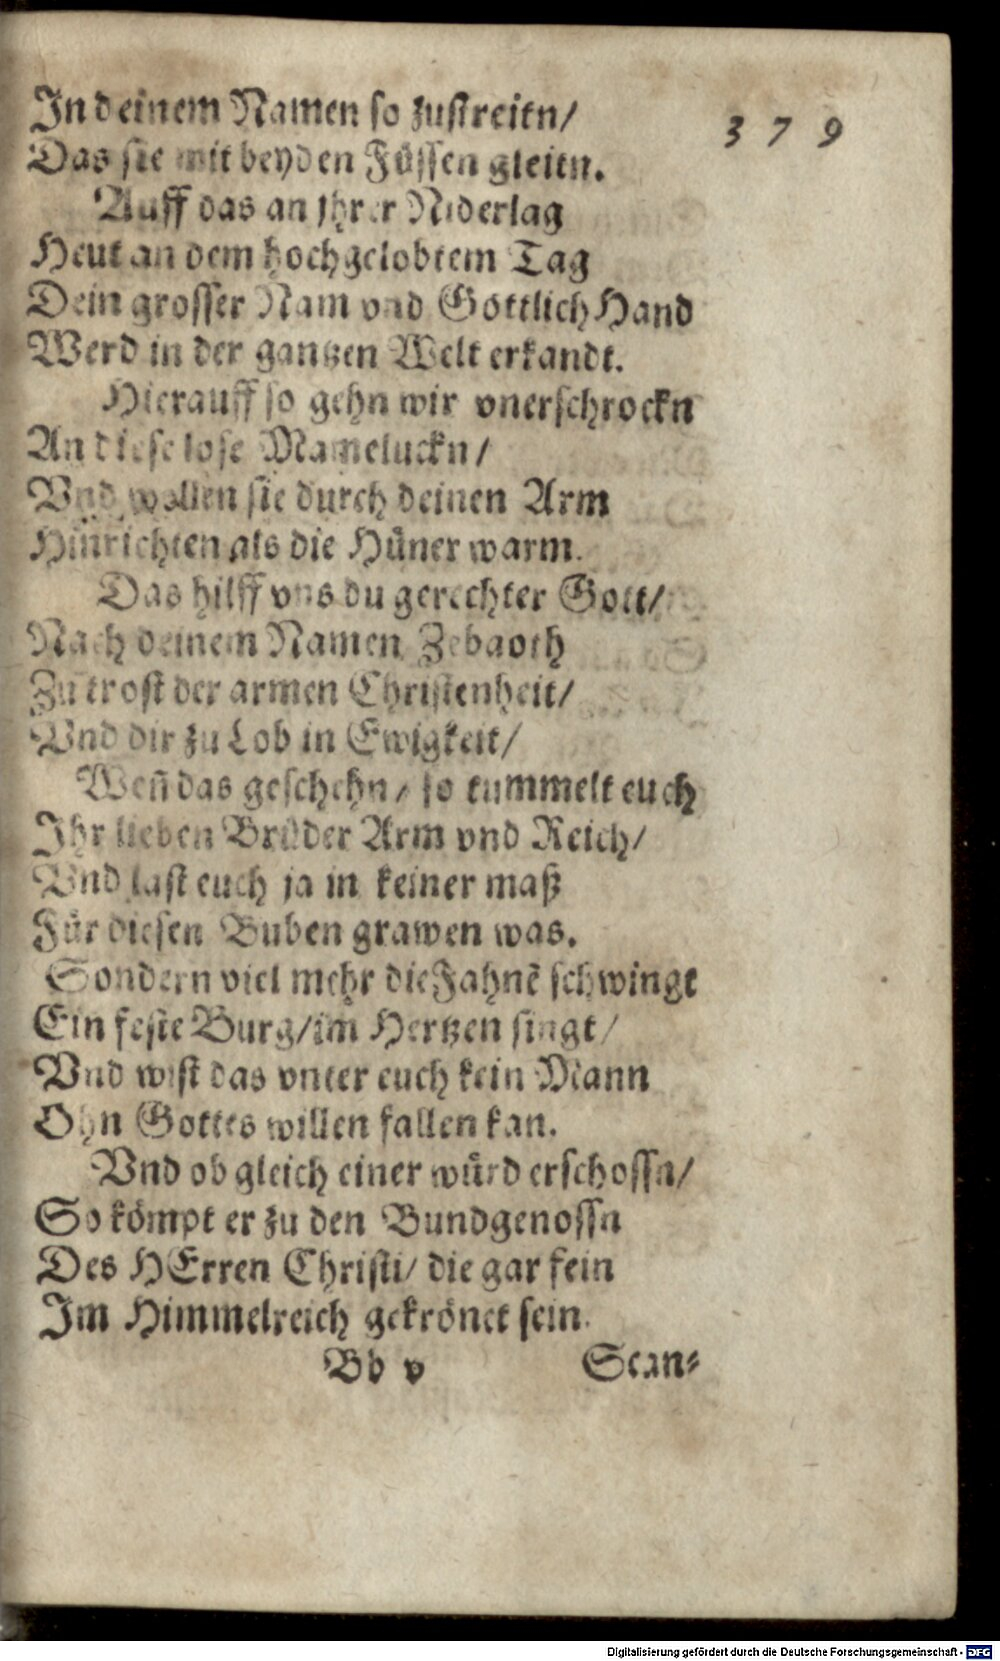 In deinem Namen so zustreitn/
379
Das sie mit beyden Füssen gleitn.
Auff das an jhrer Niderlag
Heut an dem hochgelobtem Tag
Dein grosser Nam vnd Göttlich Hand
Werd in der gantzen Welt erkandt.
Hierauff so gehn wir vnerschrockn
An diese lose Mameluckn/
Vnd wollen sie durch deinen Arm
Hinrichten als die Hüner warm.
Das hilff vns du gerechter Gott/
Nach deinem Namen Zebaoth
Zu trost der armen Christenheit/
Vnd dir zu Lob in Ewigkeit/
Weñ das geschehn/ so tummelt euch
Ihr lieben Brüder Arm vnd Reich/
Vnd last euch ja in keiner maß
Für diesen Buben grawen was.
Sondern viel mehr die Fahnẽ schwingt
Ein feste Burg/im Hertzen singt/
Vnd wist das vnter euch kein Mann
Ohn Gottes willen fallen kan.
Vnd ob gleich einer würd erschossn/
So kömpt er zu den Bundgenossn
Des HErren Christi/ die gar fein
Im Himmelreich gekrönet sein.
Bb v Scan⸗
Digitalisierung gefördert durch die Deutsche Forschungsgemeinschaft - DFG